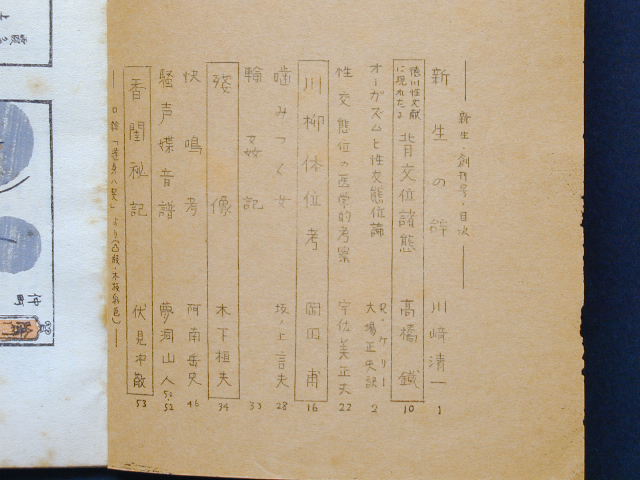 新生・創刊号・目次
新生の辞 川崎清一 1
徳川性文献に現れたる 背交位諸態 高橋鐵 10
オーガズムと性交態位論 R・ケリー 大場正史訳 2
性交態位の医学的考察 宇佐美正夫 22
川柳体位考 岡田甫 16
噛みつく女 坂ノ上言夫 28
輪姦記 33
残像 木下桓夫 34
快鳴考 阿南岳史 46
騒声媒音譜 夢洞山人 52
香閨秘記 伏見冲敬 53
仲町